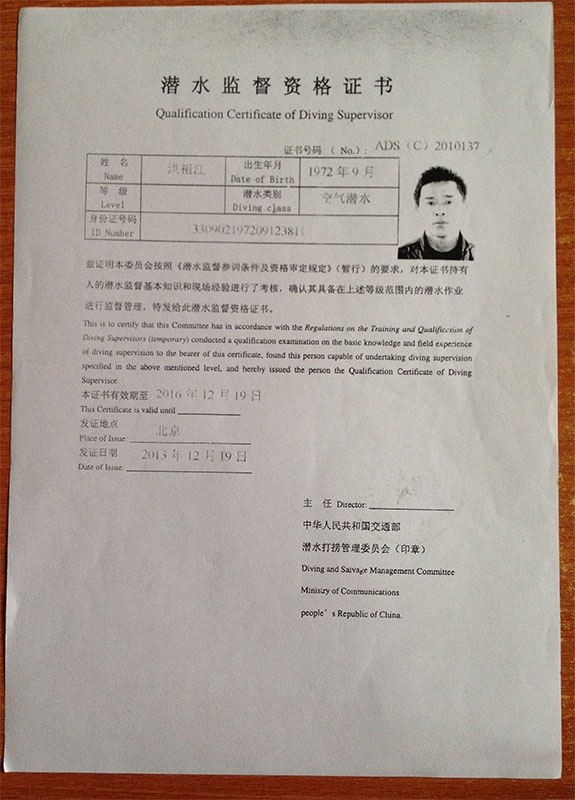 潜水监督资格证书
Qualification Certificate of Diving Supervisor
证书号码 ( No.): ADS (C) 2010137
姓名 洪祖江 出生年月 1972年9月
Name Date of Birth
等级 潜水类别 空气潜水
Level Diving class
身份证号码 330902197209123811
ID Number
兹证明本委员会按照《潜水监督参训条件及资格审定规定》(暂行)的要求，对本证书持有
人的潜水监督基本知识和现场经验进行了考核，确认其具备在上述等级范围内的潜水作业
进行监督管理，特发给此潜水监督资格证书。
This is to certify that this Committee has in accordance with the Regulations on the Training and Qualification of
Diving Supervisors (temporary) conducted a qualification examination on the basic knowledge and field experience
of diving supervision to the bearer of this certificate, found this person capable of undertaking diving supervision
specified in the above mentioned level, and hereby issued the person the Qualification Certificate of Diving
Supervisor.
本证书有效期至 2016年12月19日
This Certificate is valid until
发证地点 北京
Place of Issue:
发证日期 2013年12月19日
Date of Issue:
主 任 Director:
中华人民共和国交通部
潜水打捞管理委员会（印章）
Diving and Saivage Management Committee
Ministry of Communications
people's Republic of China.